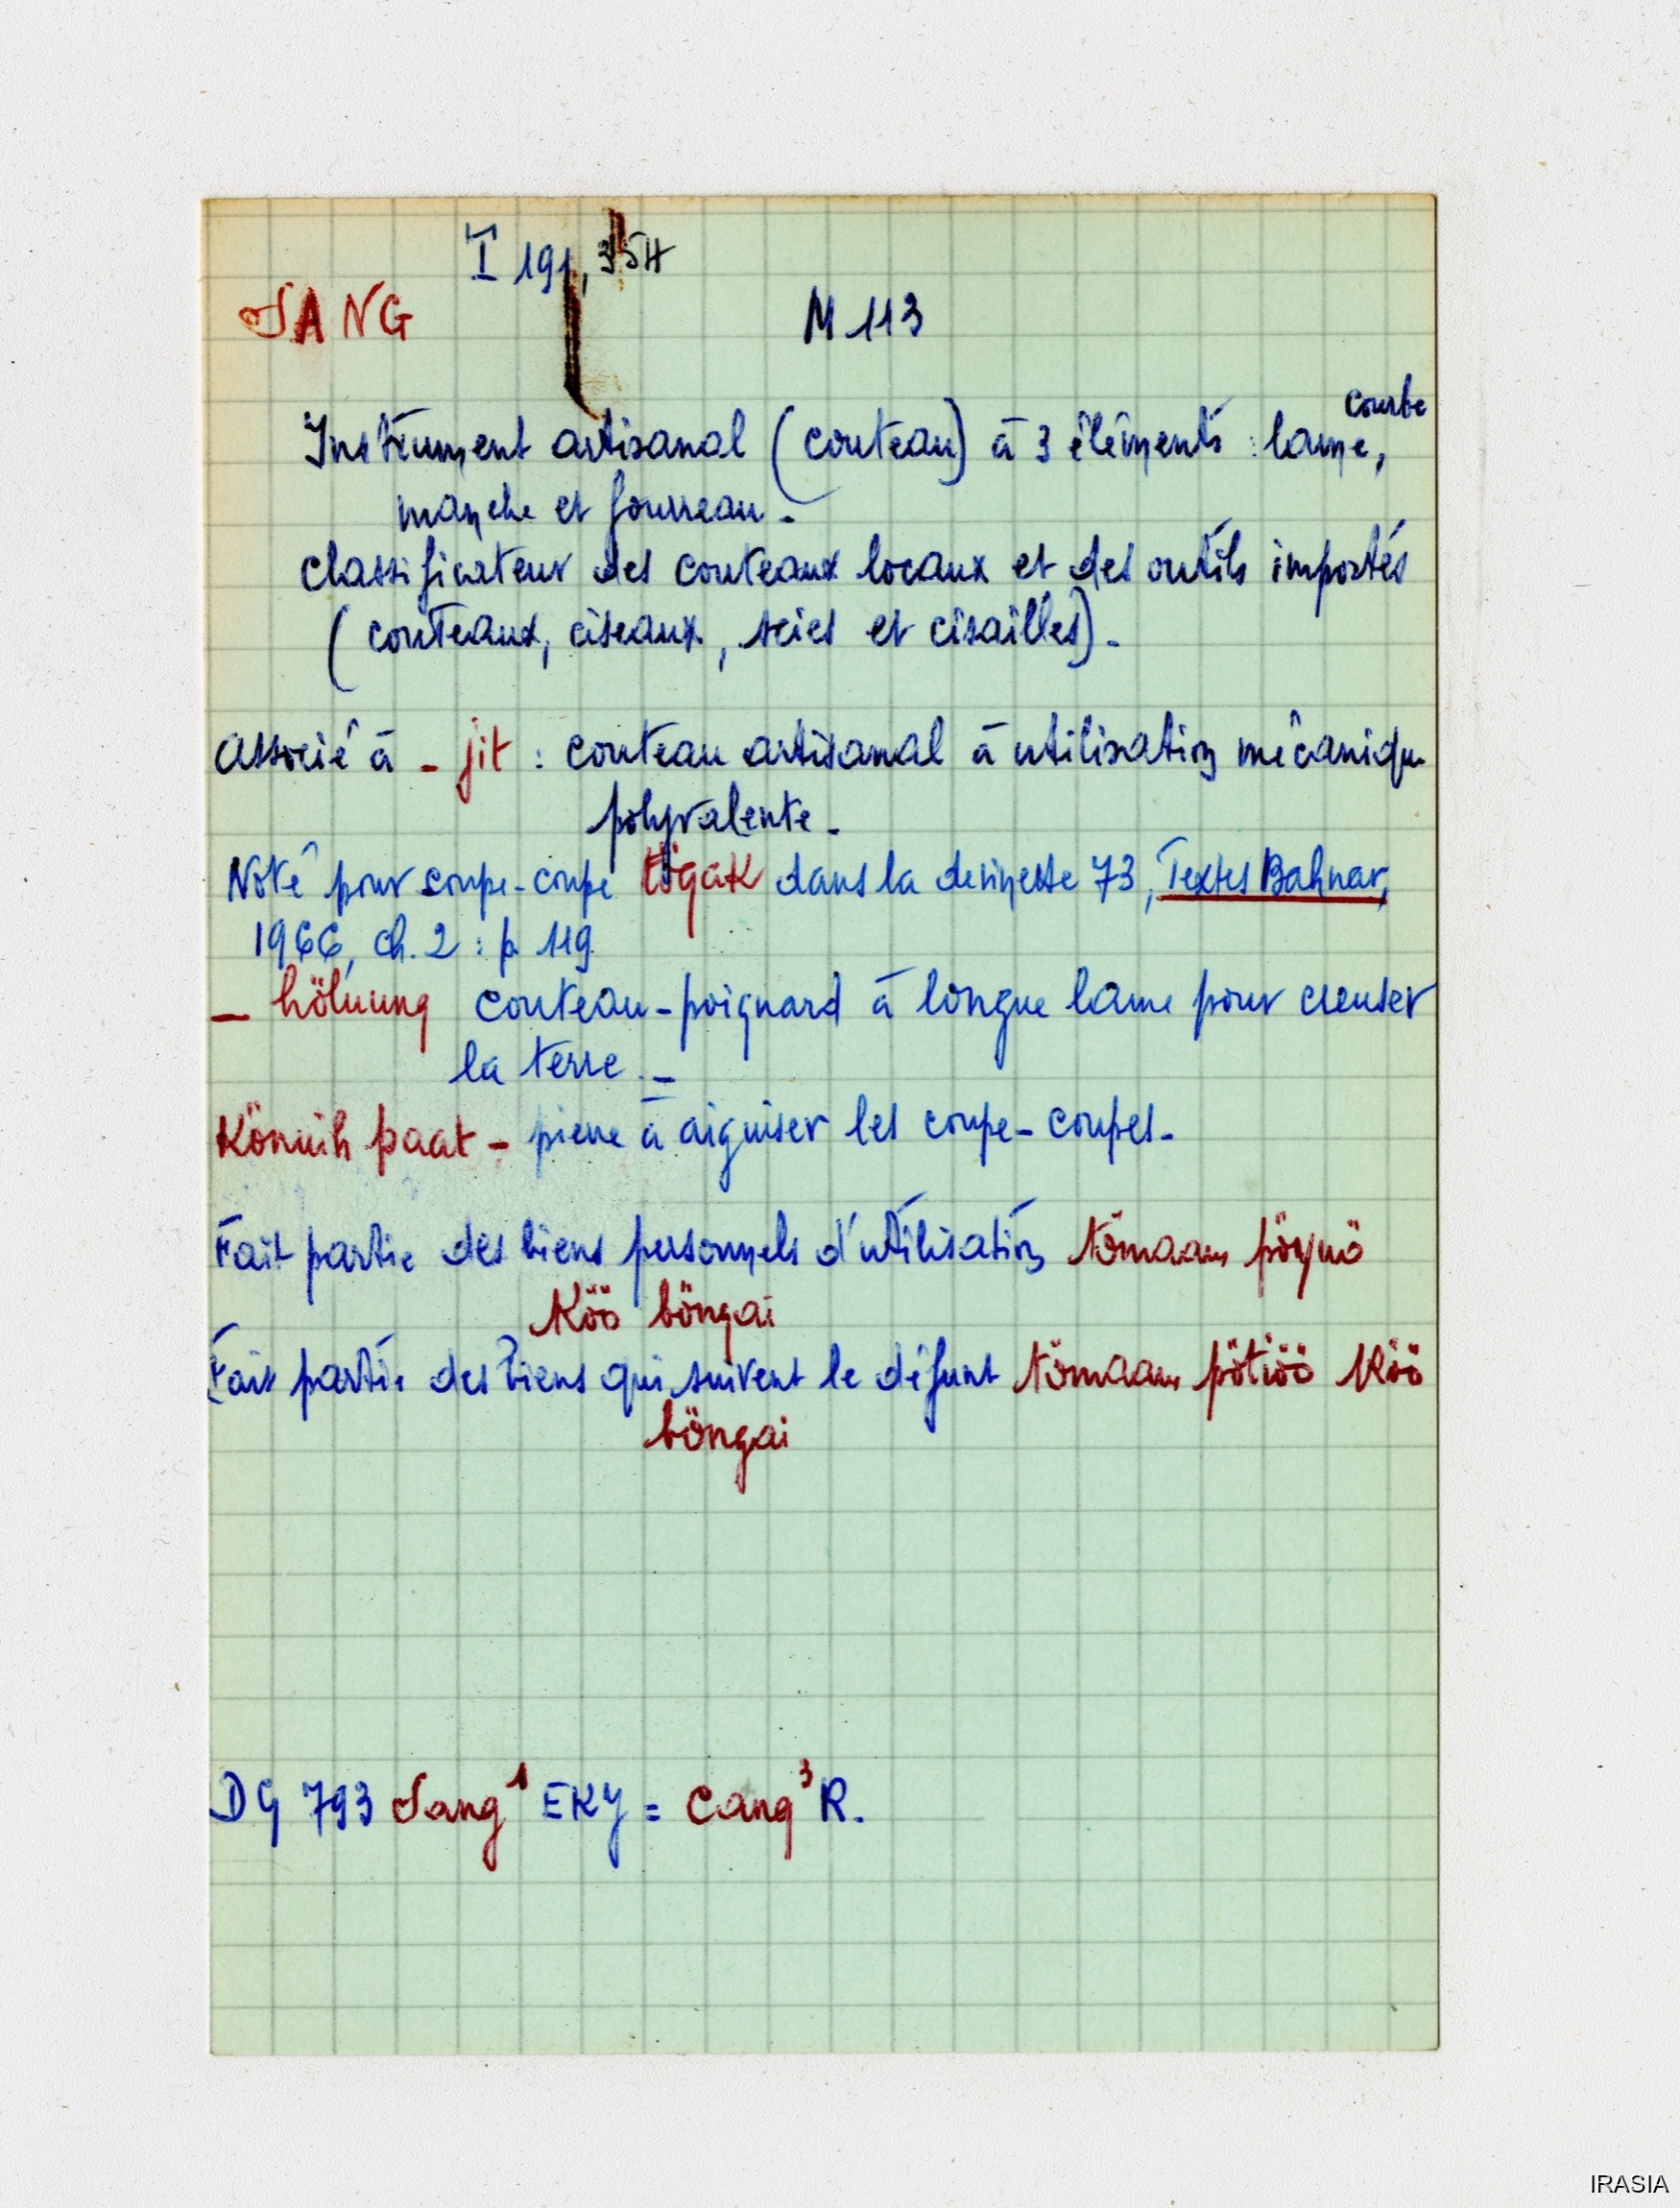 I 191, 354
SANG M 113
courbe
Instrument artisanal (couteau) à 3 éléments : lame,
manche et fourreau -
Classificateur des couteaux locaux et des outils importés
(couteaux, ciseaux, scies et cisailles) -
Associé à - jit : couteau artisanal à utilisation mécanique
polyvalente -
Noté pour coupe-coupe tögak dans la devinette 73, Textes Bahnar,
1966, ch. 2 : p 119
- höluung couteau-poignard à longue lame pour creuser
la terre. -
Könuih paat - pierre à aiguiser les coupe-coupes -
Fait partie des biens personnels d'utilisation tömaam pöymö
Köö böngai
Fait partie des biens qui suivent le défunt tömaam pötiöö Köö
böngai
DG 793 Sang 1 EKY = Cang 3 R.
IRASIA